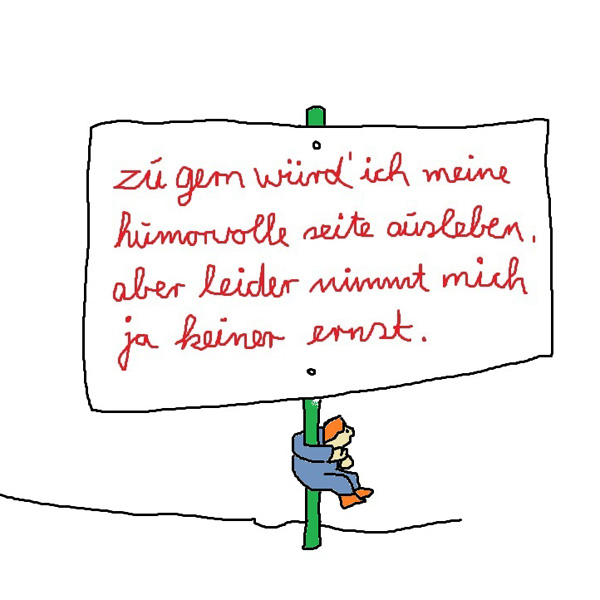 zu gern würd' ich meine
humorvolle seite ausleben,
aber leider nimmt mich
ja keiner ernst.